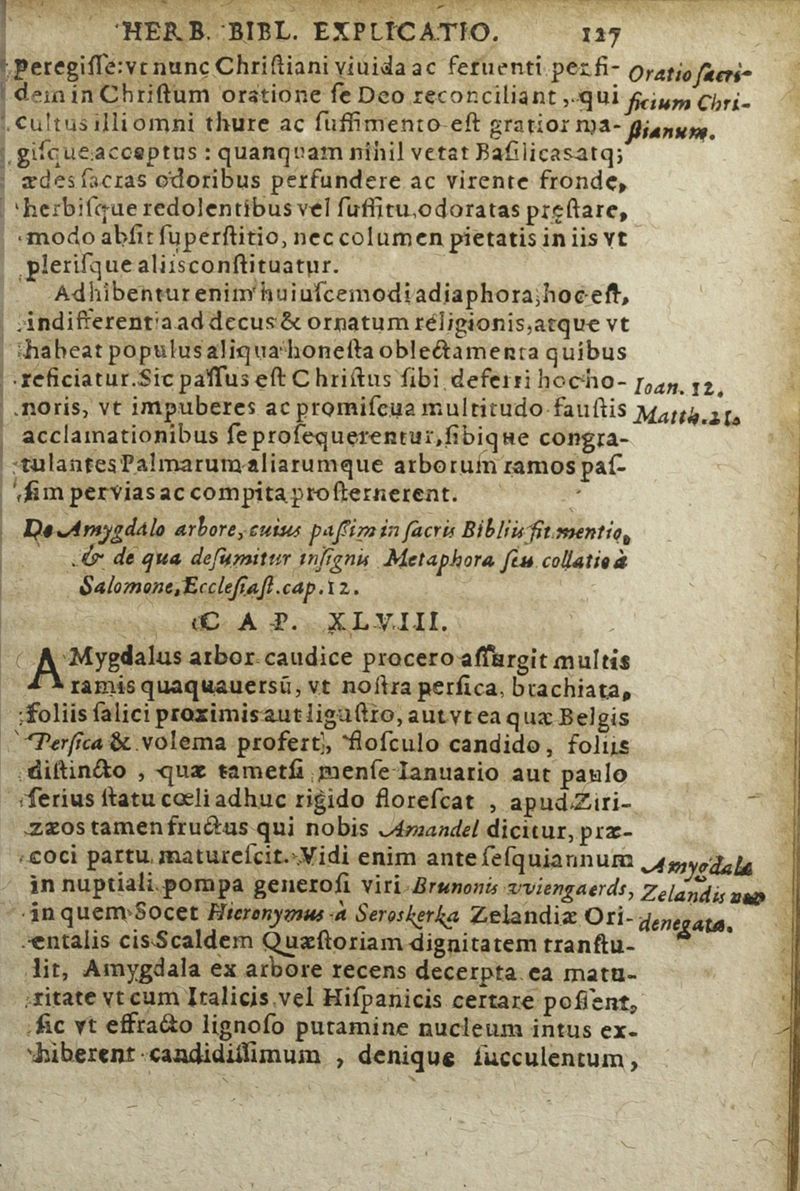 HERB. BIBL. EXPLICATIO. 127
peregiſſe: vt nunc Chriſtiani viuida ac feruenti per fi-
dem in Chriſtum oratione ſe Deo reconciliant, qui
cultus illi omni thure ac ſuffimento eſt gratior ma-
giſque acceptus : quanquam nihil vetat Baſilicas atq;
ædes ſacras odoribus perfundere ac virente fronde,
herbiſque redolentibus vel ſuffitu, odoratas pręſtare,
modo abſit ſuperſtitio, nec columen pietatis in iis vt
pleriſque aliis conſtituatur.
Oratio ſacri-
ficium Chri-
ſtianum.
Adhibentur enim huiuſcemodi adiaphora, hoc eſt,
indifferentia ad decus & ornatum religionis, atque vt
habeat populus aliqua honeſta oblectamenta quibus
reficiatur. Sic paſſus eſt Chriſtus ſibi deferri hoc ho-
noris, vt impuberes ac promiſcua multitudo fauſtis
acclamationibus ſe proſequerentur, ſibique congra-
tulantes Palmarum aliarumque arborum ramos paſ-
ſim per vias ac compita proſternerent.
Ioan. 12.
Matth. 21.
De Amygdalo arbore, cuius paſſim in ſacris Bibliis fit mentio,
& de qua deſumitur inſignis Metaphora ſeu collatio à
Salomone, Eccleſiaſt. cap. 12.
CAP. XLVIII.
AMygdalus arbor caudice procero aſſurgit multis
ramis quaquauersū, vt noſtra perſica, brachiata,
foliis ſalici proximis aut liguſtro, aut vt ea quæ Belgis
Perſica & volema profert, floſculo candido, foliis
diſtincto , quæ tametſi menſe Ianuario aut paulo
ſerius ſtatu cœli adhuc rigido floreſcat , apud Ziri-
zæos tamen fructus qui nobis Amandel dicitur, præ-
coci partu matureſcit. Vidi enim ante ſeſquiannum
in nuptiali pompa generoſi viri Brunonis vviengaerds,
in quem Socet Hieronymus à Seroskerka Zelandiæ Ori-
entalis cis Scaldem Quæſtoriam dignitatem tranſtu-
lit, Amygdala ex arbore recens decerpta ea matu-
ritate vt cum Italicis vel Hiſpanicis certare poſſent,
ſic vt effracto lignoſo putamine nucleum intus ex-
hiberent candidiſſimum , denique ſucculentum,
Amygdala
Zelandis non
denegata.